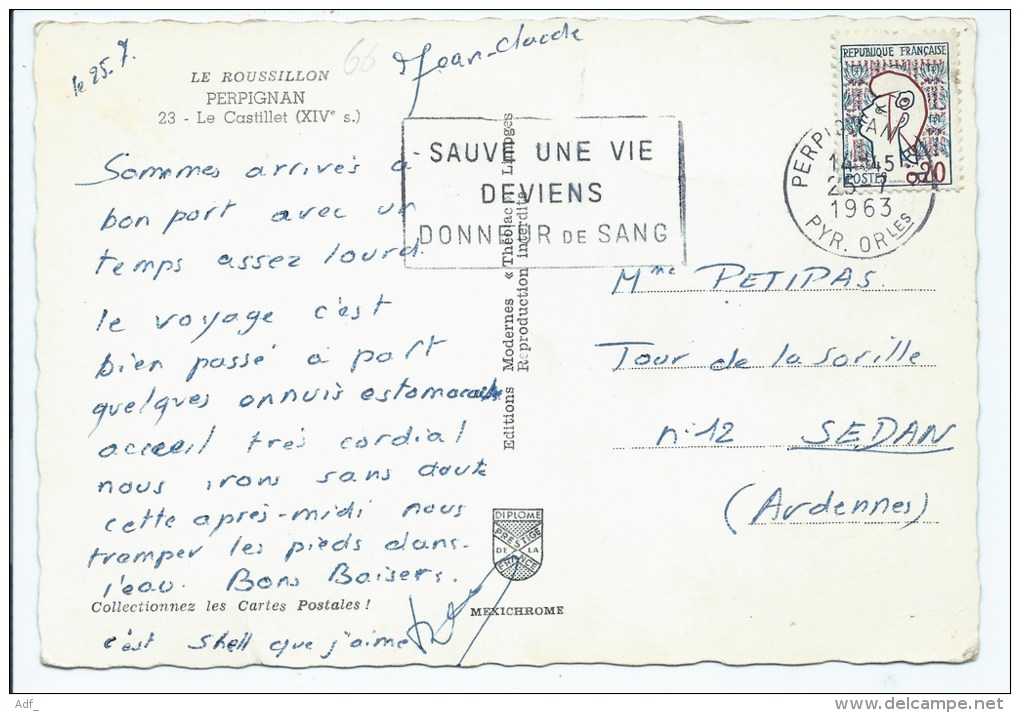 le 25.7.
66
Jean-Claude
LE ROUSSILLON
PERPIGNAN
23 - Le Castillet (XIVe s.)
Sommes arrivés à
bon port avec un
temps assez lourd.
le voyage c'est
bien passé à part
quelques annuis estomacals
accueil très cordial
nous irons sans doute
cette après-midi nous
tremper les pieds dans
l'eau. Bons Baisers.
Collectionnez les Cartes Postales !
c'est Shell que j'aime
SAUVE UNE VIE
DEVIENS
DONNEUR DE SANG
Editions Modernes « Théojac » Limoges
Reproduction interdite
DIPLOME
PRESTIGE
DE LA
FRANCE
MEXICHROME
REPUBLIQUE FRANÇAISE
POSTES
0,20
PERPIGNAN
14-45
25-7
1963
PYR. ORLES
Mme PETIPAS.
Tour de la Sorille
n°12 SEDAN
(Ardennes)
Adf_
www.delcampe.net